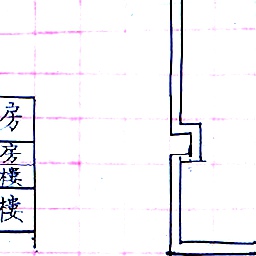 房
房
樓
樓